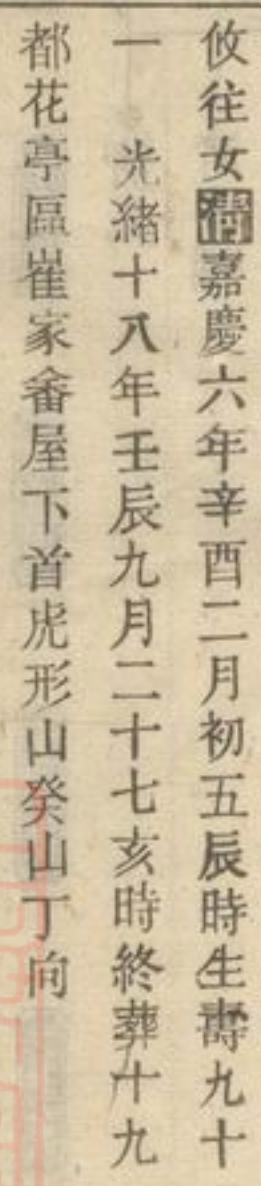 攸往女清嘉慶六年辛酉二月初五辰時生壽九十
一　光緒十八年壬辰九月二十七亥時終葬十九
都花亭區崔家畲屋下首虎形山癸山丁向